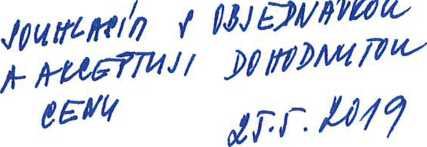 SOUHLASÍM S OBJEDNÁVKOU
A AKCEPTUJI DOHODNUTOU
CENU
25.5. 2019